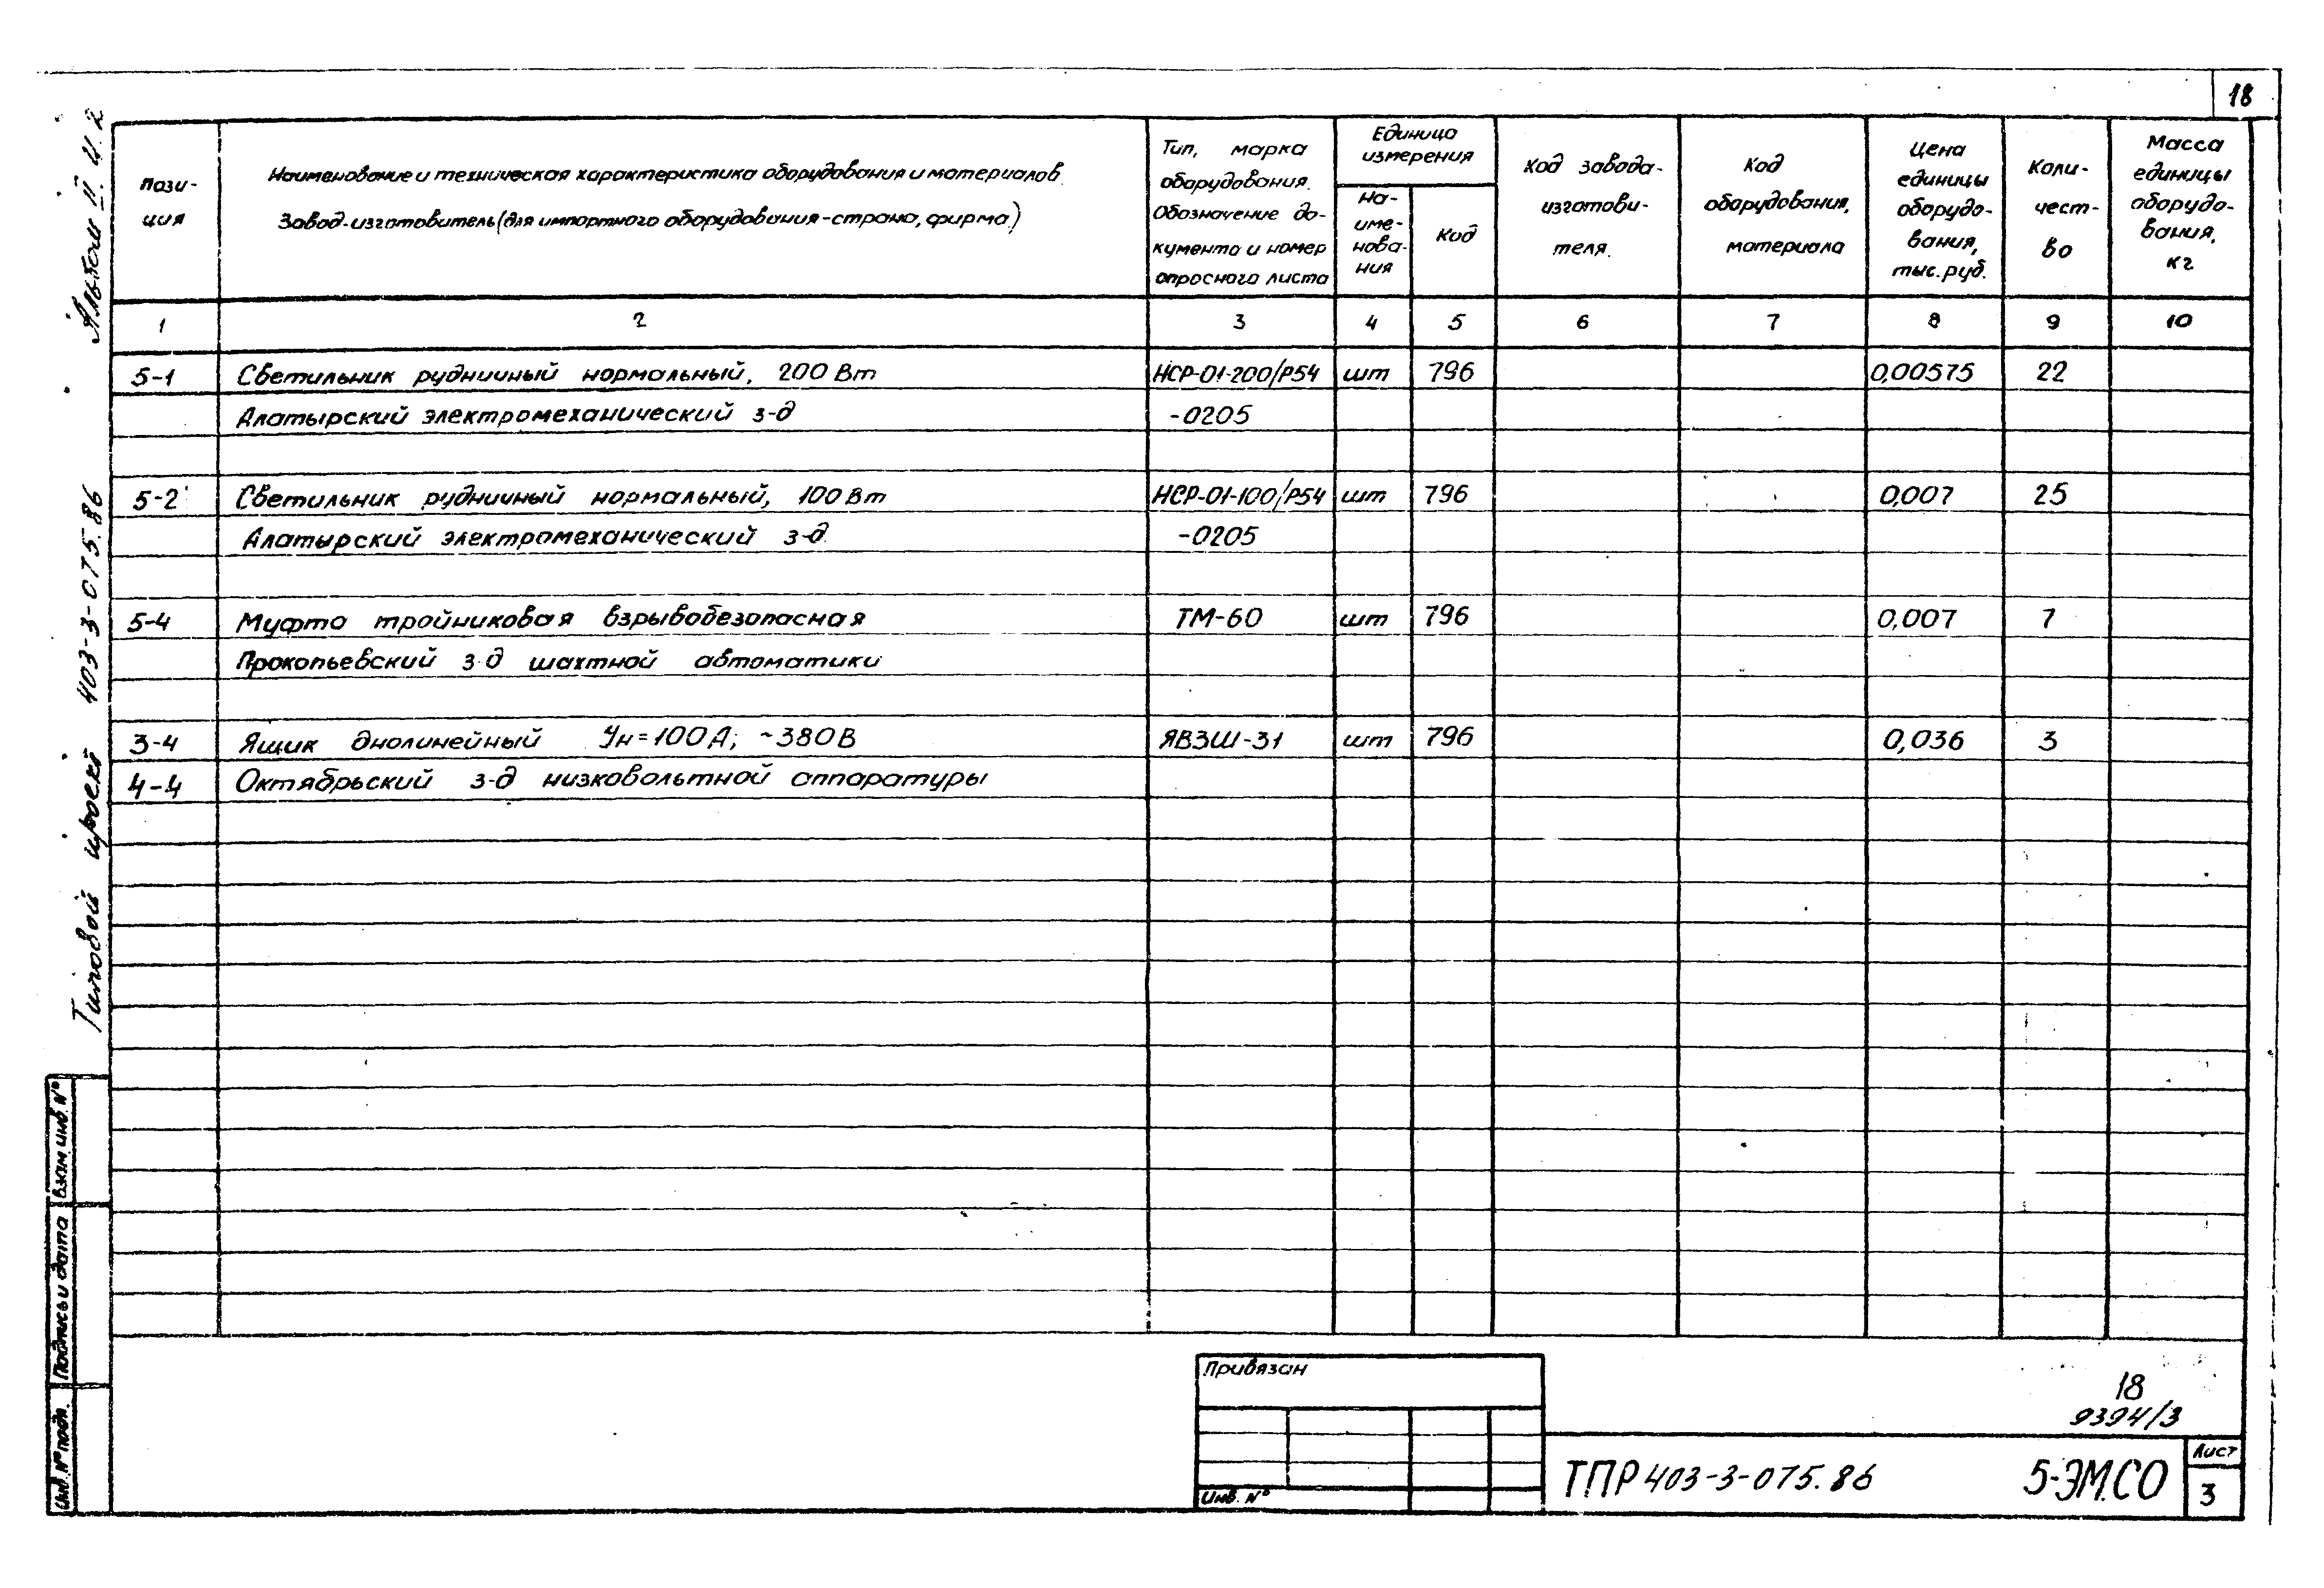 18
Альбом II ч. 2
Типовой проект 403-3-075.86
Пози-
ция
Наименование и техническая характеристика оборудования и материалов.
Завод-изготовитель (для импортного оборудования-страна, фирма)
Тип, марка
оборудования.
Обозначение до-
кумента и номер
опросного листа
Единица
измерения
На-
име-
нова-
ния
Код
Код завода-
изготови-
теля.
Код
оборудования,
материала
Цена
единицы
оборудо-
вания,
тыс. руб.
Коли-
чест-
во
Масса
единицы
оборудо-
вания,
кг
1 2 3 4 5 6 7 8 9 10
5-1 Светильник рудничный нормальный, 200 Вт НСР-01-200/Р54 шт 796 0,00575 22
Алатырский электромеханический з-д -0205
5-2 Светильник рудничный нормальный, 100 Вт НСР-01-100/Р54 шт 796 0,007 25
Алатырский электромеханический з-д -0205
5-4 Муфта тройниковая взрывобезопасная ТМ-60 шт 796 0,007 7
Прокопьевский з-д шахтной автоматики
3-4 Ящик днолинейный Ун=100А; ~380В ЯВЗШ-31 шт 796 0,036 3
4-4 Октябрьский з-д низковольтной аппаратуры
Взам. инв. N°
Подпись и дата
Инв. N° подл.
Привязан
Инв. N°
18
9394/3
ТПР 403-3-075.86 5-ЭМ.СО
Лист
3